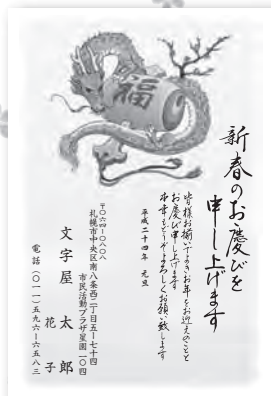 福
新春のお慶びを
申し上げます
皆様お揃いでよきお年をお迎えのこと
お慶び申し上げます
本年もどうぞよろしくお願い致します
平成二十四年　元旦
〒〇六四-〇八〇〇
札幌市中央区南八条西二丁目五-七十四
市民活動プラザ星園一〇四
文字屋　太郎
花子
電話（〇一一）五九六-六五八三